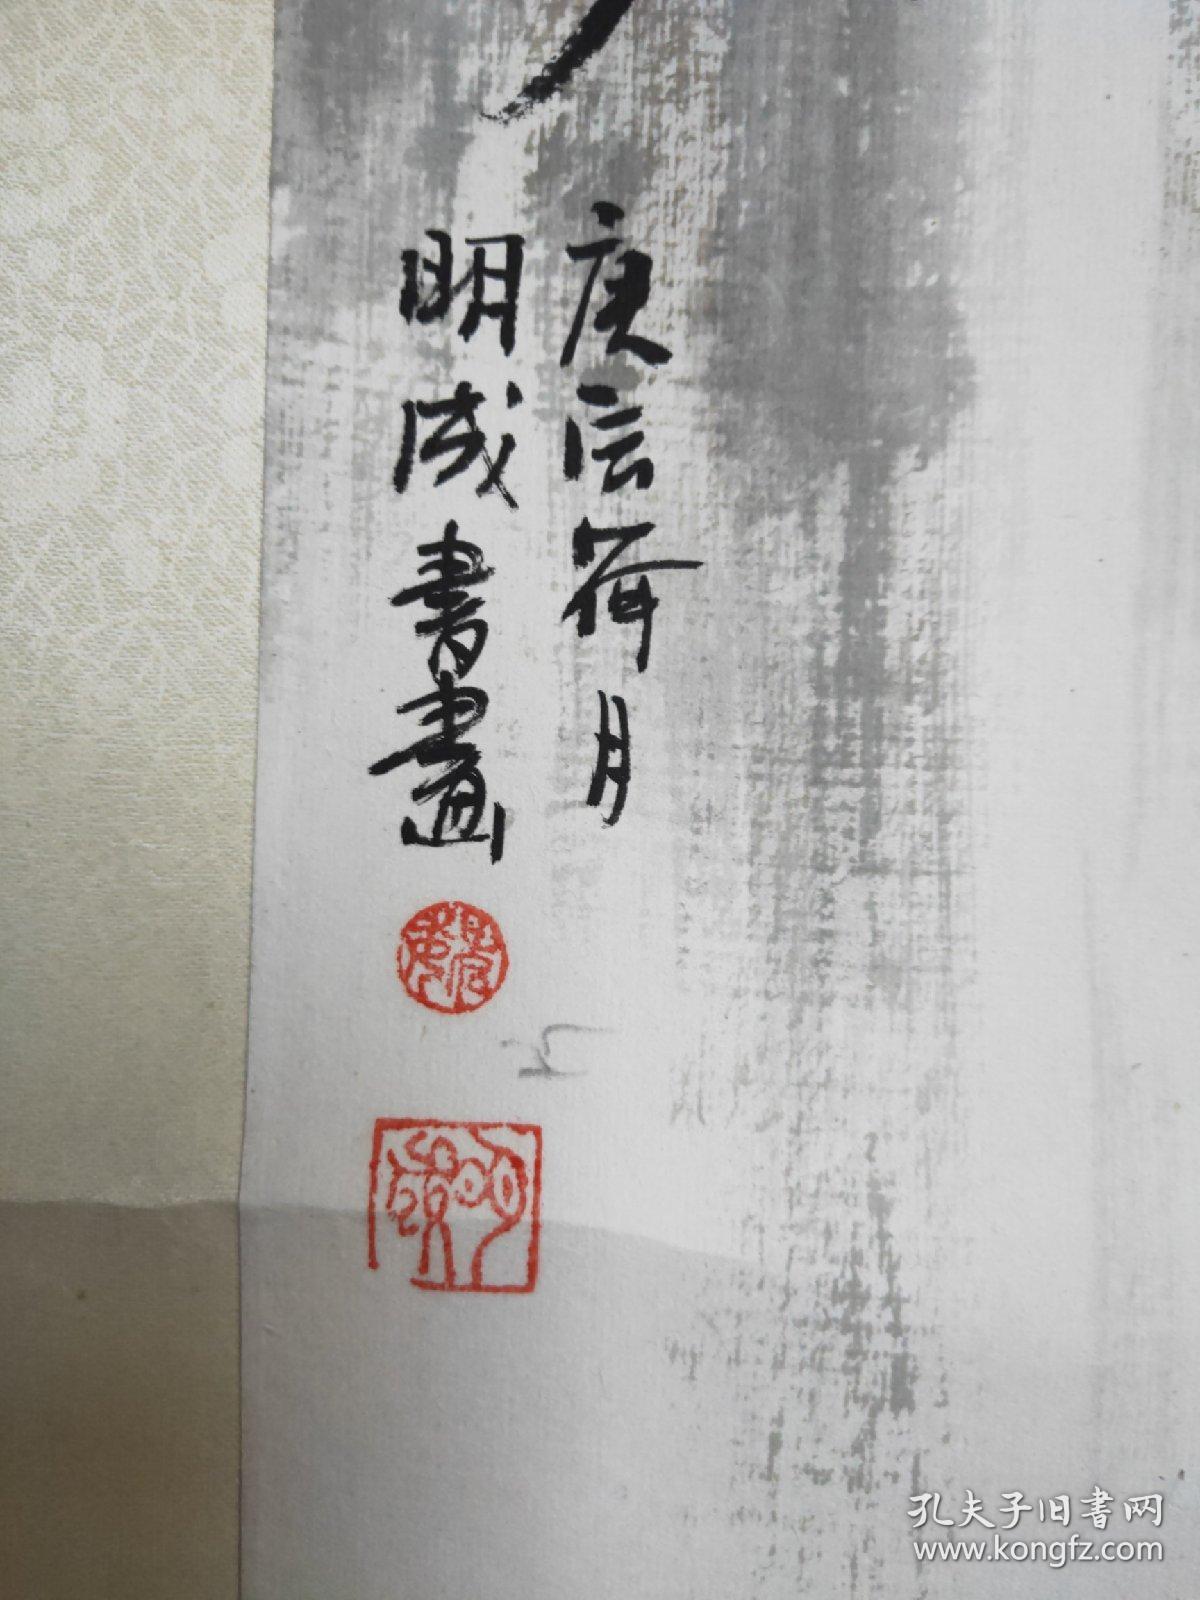 庚辰荷月
明成書畫
孔夫子旧書网
www.kongfz.com